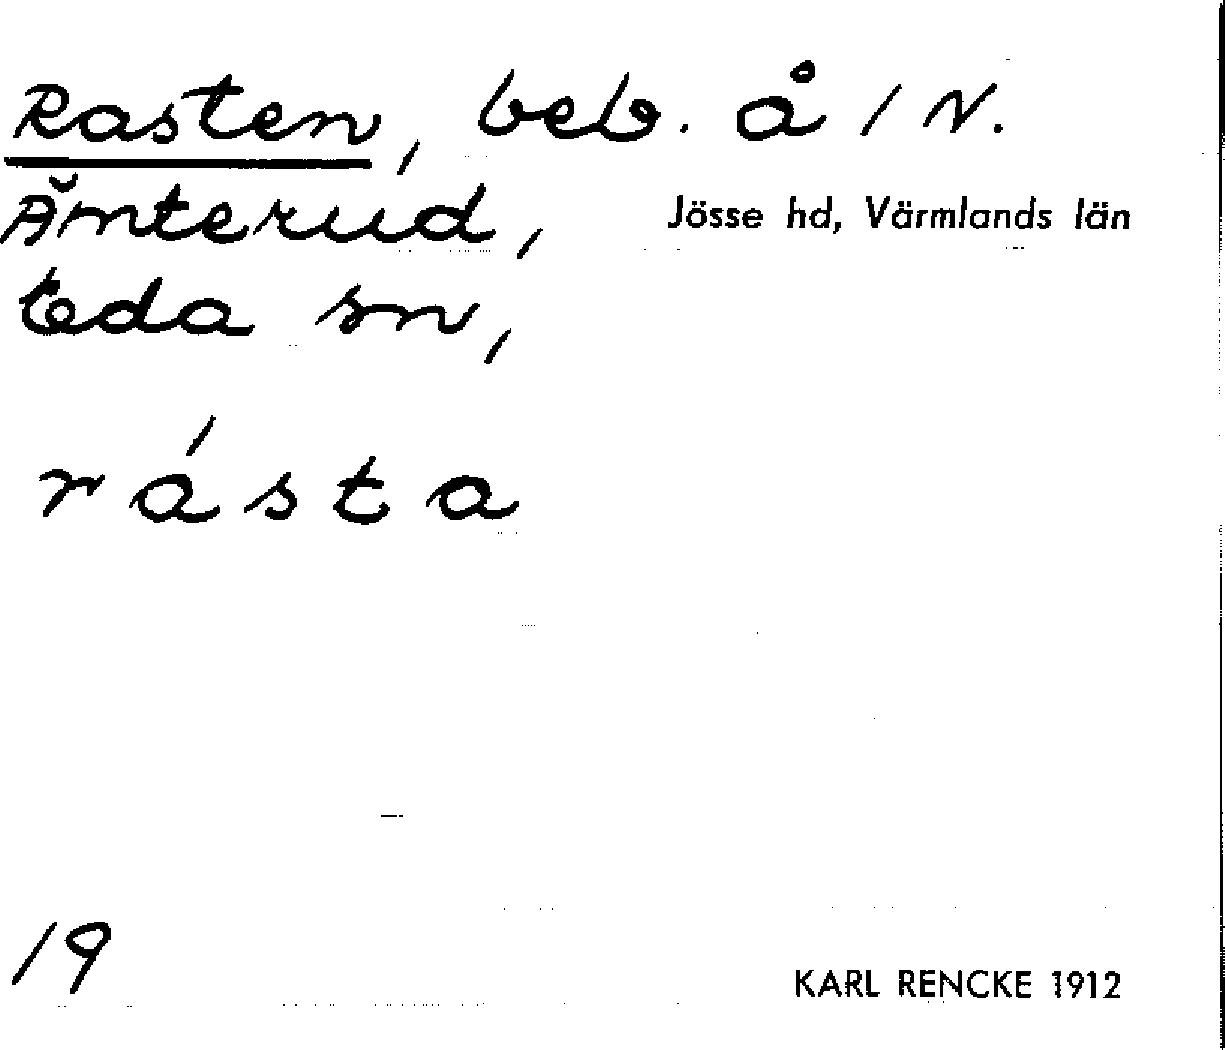 Rasten, beb. å 1 N.
Ämterud, Jösse hd, Värmlands län
Eda sn,
rásta
19
KARL RENCKE 1912